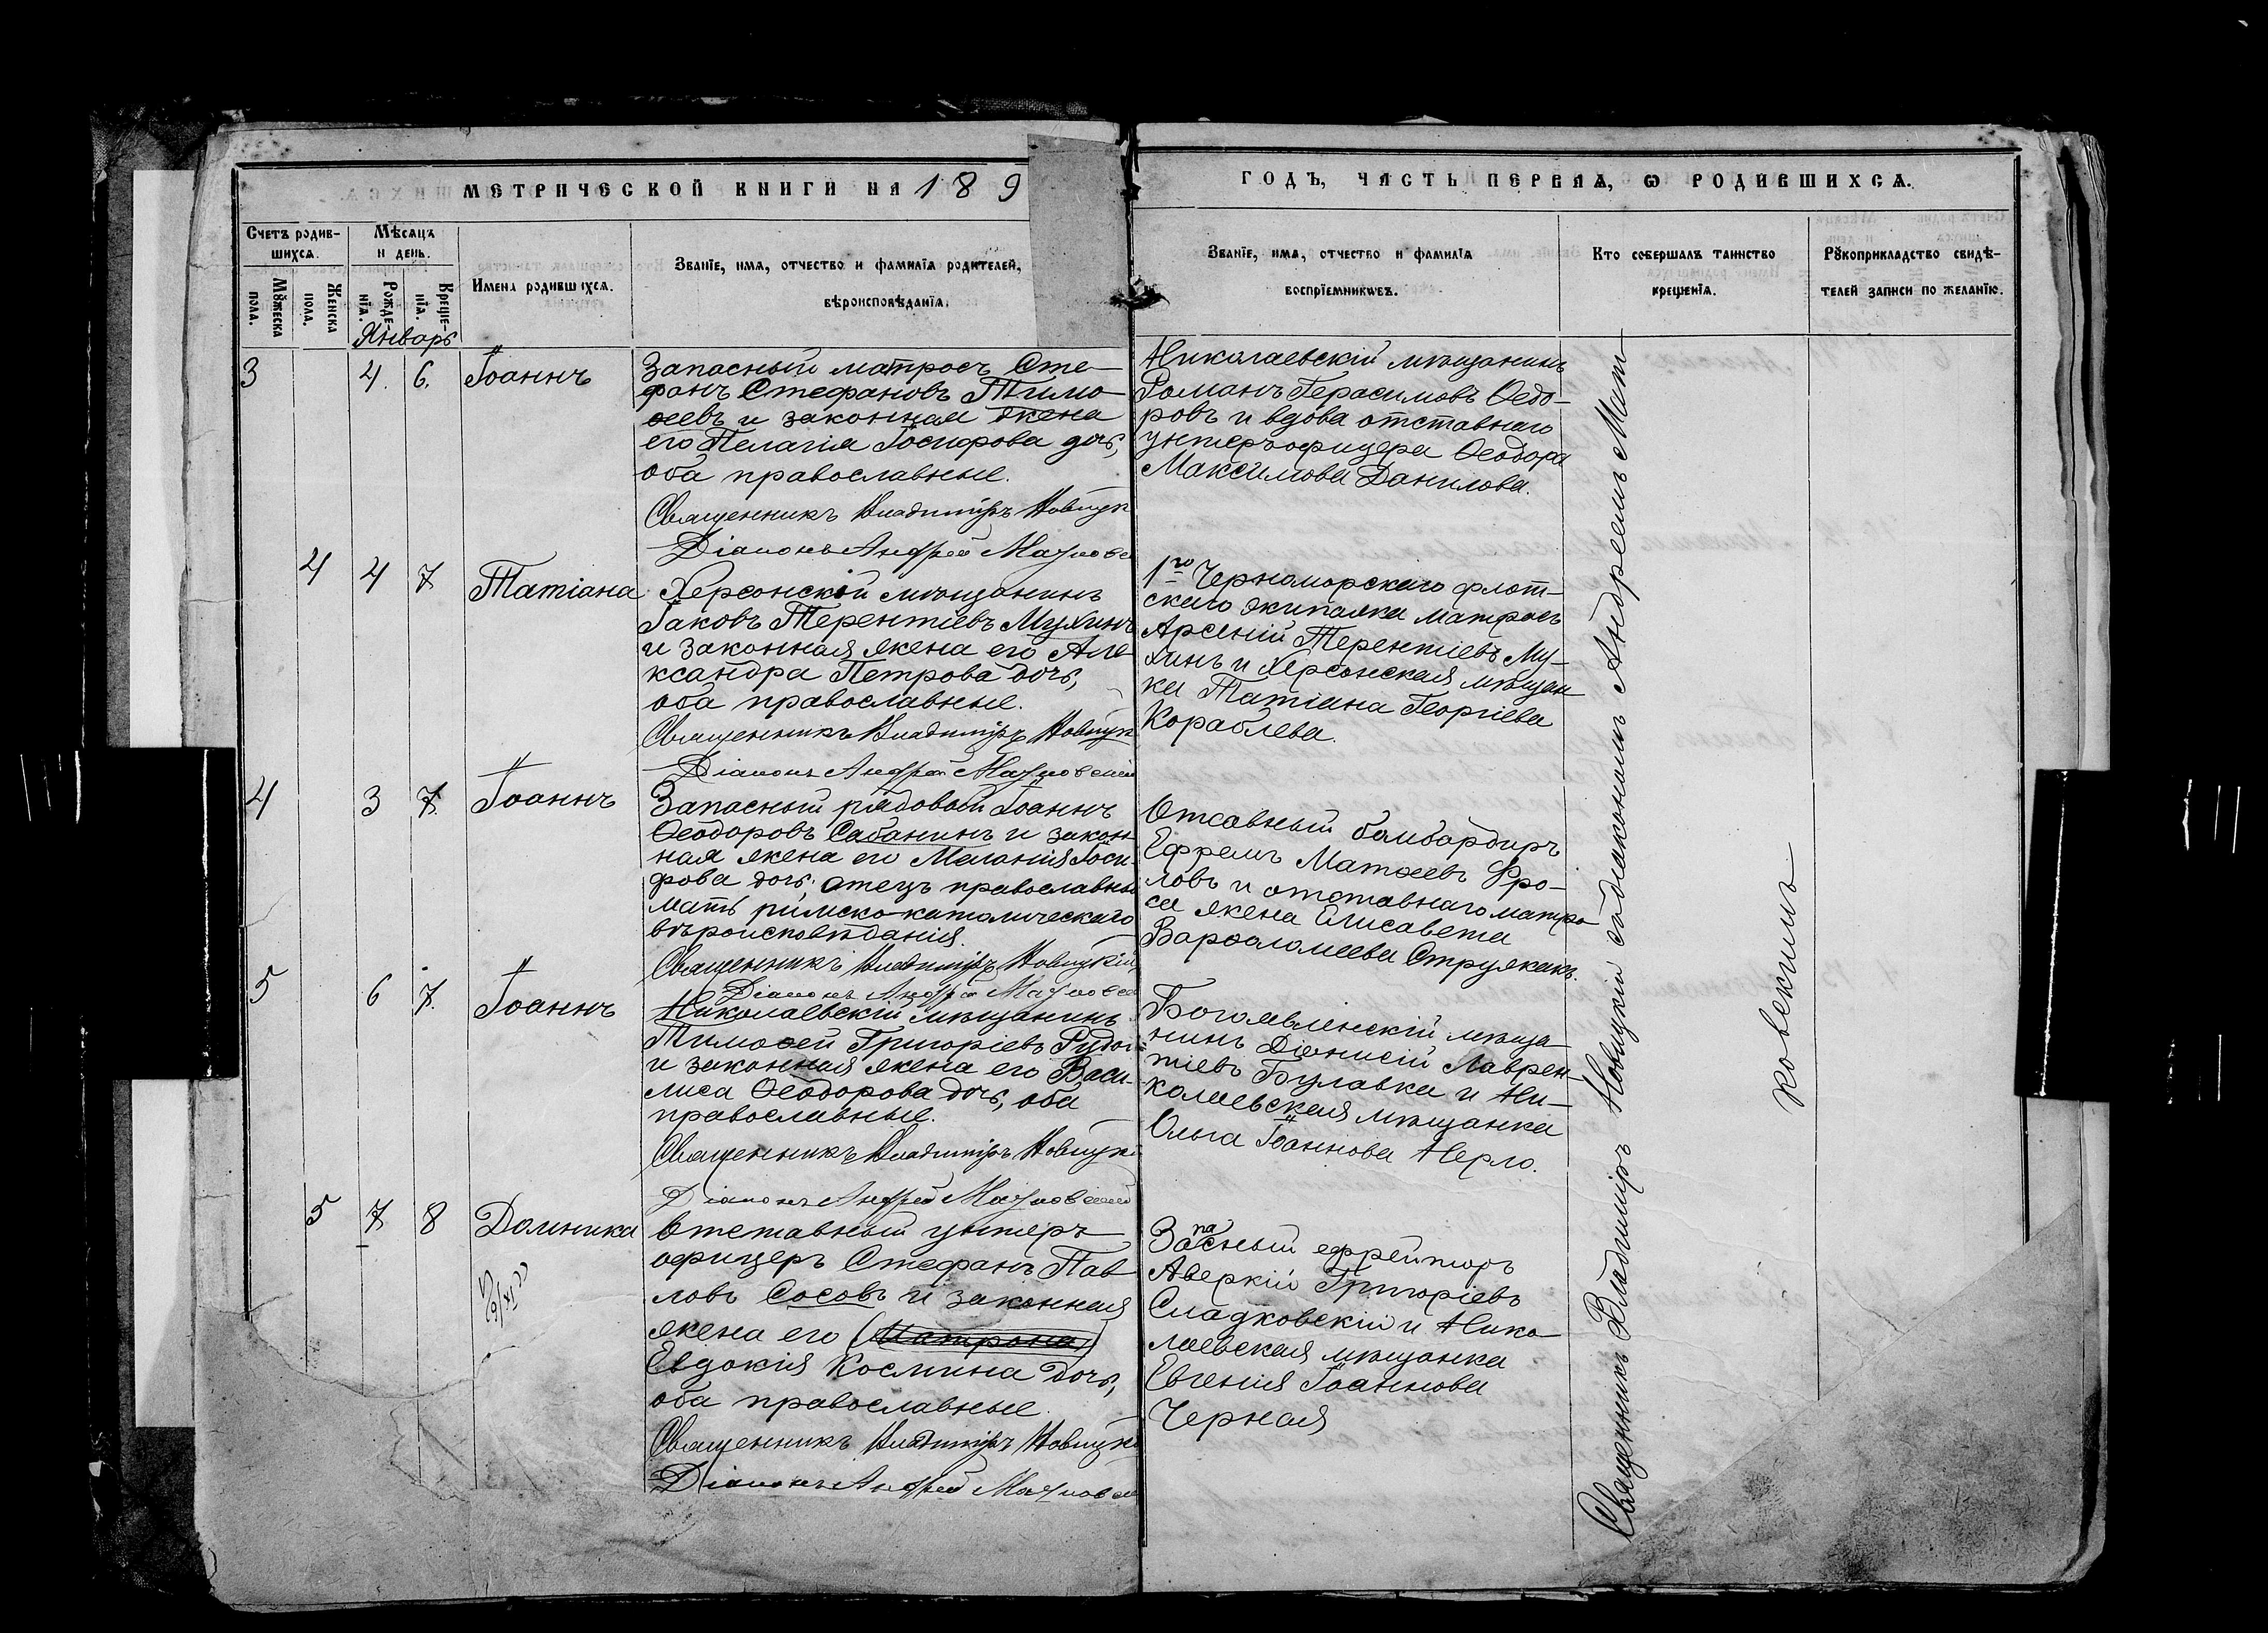 МЕТРИЧЕСКОЙ КНИГИ НА 189
ГОДЪ, ЧАСТЬ ПЕРВАЯ, Ѡ РОДИВШИХСЯ.
Счетъ родив-
шихся.
Мꙋжеска
пола.
Женска
пола.
Мѣсяцъ
и день.
Рожде-
нія.
Креще-
нія.
Имена родившихся.
Званіе, имя, отчество и фамилія родителей,
вѣроисповѣданія.
Званіе, имя, отчество и фамилія
воспріемниковъ.
Кто совершалъ таинство
крещенія.
Рꙋкоприкладство свидѣ-
телей записи по желанію.
Январь
3 4. 6. Іоаннъ
Запасный матросъ Сте-
фанъ Стефановъ Тимо-
ѳеевъ и законная жена
его Пелагія Іосифова дочь,
оба православные.
Священникъ Владиміръ Новицк
Діаконъ Андрей
Николаевскій мѣщанинъ
Романъ Герасимовъ Ѳедо-
ровъ и вдова отставнаго
унтеръ офицера Ѳеодора
Максимова Данилова.
4 4 7 Татіана
Херсонскій мѣщанинъ
Іаковъ Терентіевъ Мухинъ
и законная жена его Але-
ксандра Петрова дочь,
оба православные.
Священникъ Владиміръ Новицк
Діаконъ Андрей
1го Черноморскаго флот-
скаго экипажа матросъ
Арсеній Терентіевъ Му-
хинъ и Херсонская мѣщан
ка Татіана Георгіева
Кораблева.
4 3 7. Іоаннъ
Запасный рядовой Іоаннъ
Ѳеодоровъ Сабанинъ и закон-
ная жена его Меланія Іоси-
фова дочь; отецъ православный
мать римско-католическаго
вѣроисповѣданія.
Священникъ Владиміръ Новицкій
Діаконъ Андрей
Отсавный бомбардиръ
Ефремъ Матѳеевъ Фро-
ловъ и отставнаго матро
са жена Елисавета
Варѳоломеева Стружкинъ.
5 6 7. Іоаннъ
Николаевскій мѣщанинъ
Тимоѳей Григоріевъ
и законная жена его Васи-
лиса Ѳеодорова дочь, оба
православные.
Священникъ Владиміръ Новицкі
Діаконъ Андрей
Богоявленскій мѣща-
нинъ Діонисій Лаврен-
тіевъ Булавка и Ни-
колаевская мѣщанка
Ольга Іоаннова Нерло.
5 7 8 Домника
Отставный унтеръ
офицеръ Стефанъ Пав
ловъ Сосовъ и законная
жена его (Матрона)
Евдокія Космина дочь,
оба православные.
Священникъ Владиміръ Новицкі
Діаконъ Андрей
Запасный ефрейторъ
Аверкій Григоріевъ
Сладковскій и Нико
лаевская мѣщанка
Евгенія Іоаннова
Черная
Священникъ Владиміръ Новицкій со діакономъ Андреемъ Мат
ковскимъ